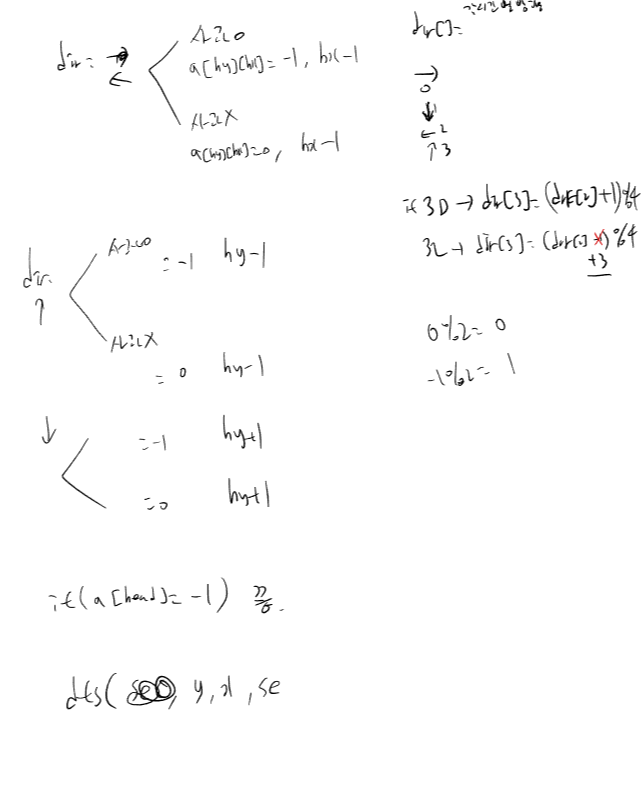 dir = →
←
사과O
a[hy][hx] = -1, hx-1
사과X
a[hy][hx]=0, hx-1
dir[]=
→
0
↓
← 2
↑ 3
if 3D → dir[3]=(dir[2]+1)%4
3L → dir[3]=(dir[2]
)%4
+3
dir
↑
사과O
= -1 hy-1
사과X
= 0 hy-1
0%2= 0
-1%2= 1
↓
=-1 hy+1
=0 hy+1
if(a[head]= -1)
dfs(
, y, x, se